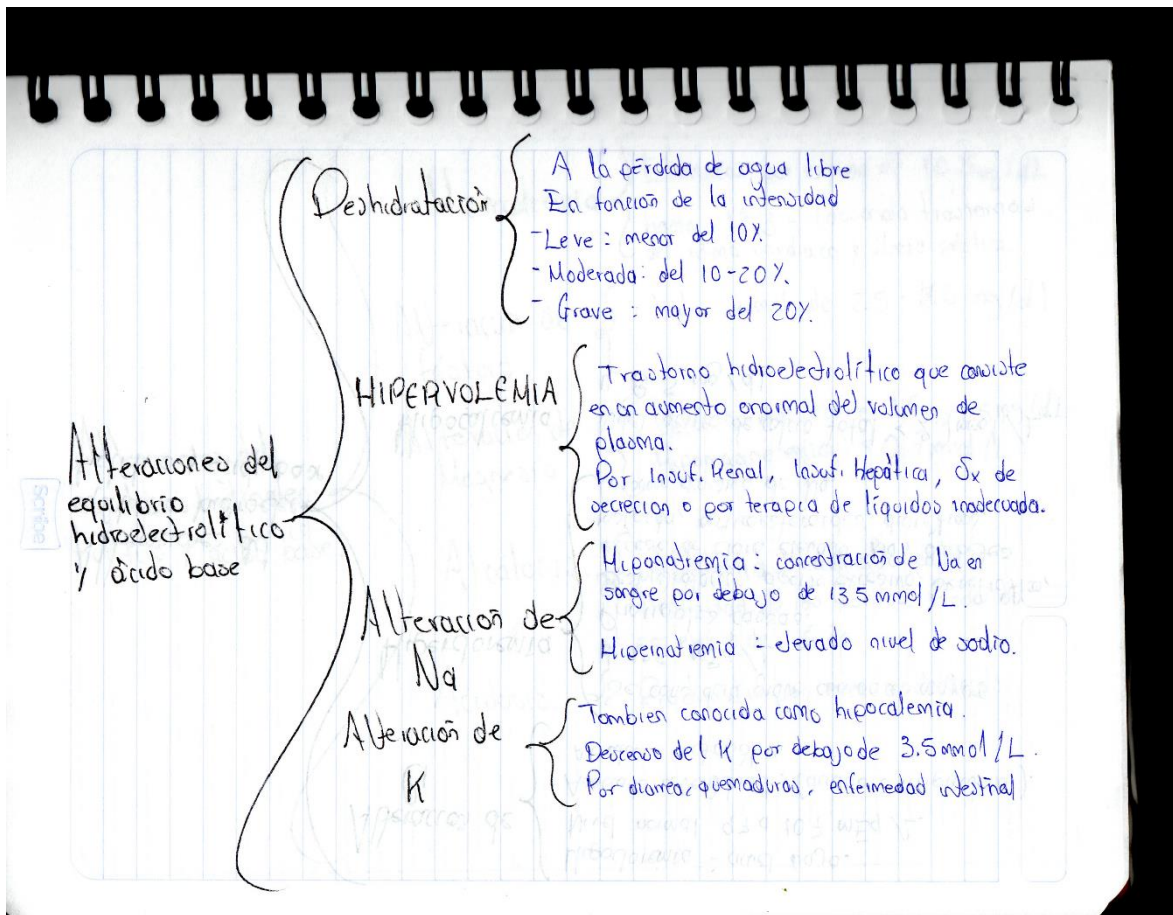 Alteraciones del
equilibrio
hidroelectrolítico
y ácido base
Deshidratación
A la pérdida de agua libre
En función de la intensidad
- Leve : menor del 10%.
- Moderada: del 10-20%.
- Grave : mayor del 20%.
HIPERVOLEMIA
Trastorno hidroelectrolítico que consiste
en un aumento anormal del volumen de
plasma.
Por Insuf. Renal, Insuf. Hepática, Sx de
secreción o por terapia de líquidos inadecuada.
Alteración de
Na
Hiponatremia : concentración de Na en
sangre por debajo de 135 mmol/L.
Hipernatremia - elevado nivel de sodio.
Alteración de
K
Tambien conocida como hipocalemia.
Descenso del K por debajo de 3.5 mmol/L.
Por diarrea, quemaduras, enfermedad intestinal
Scribe